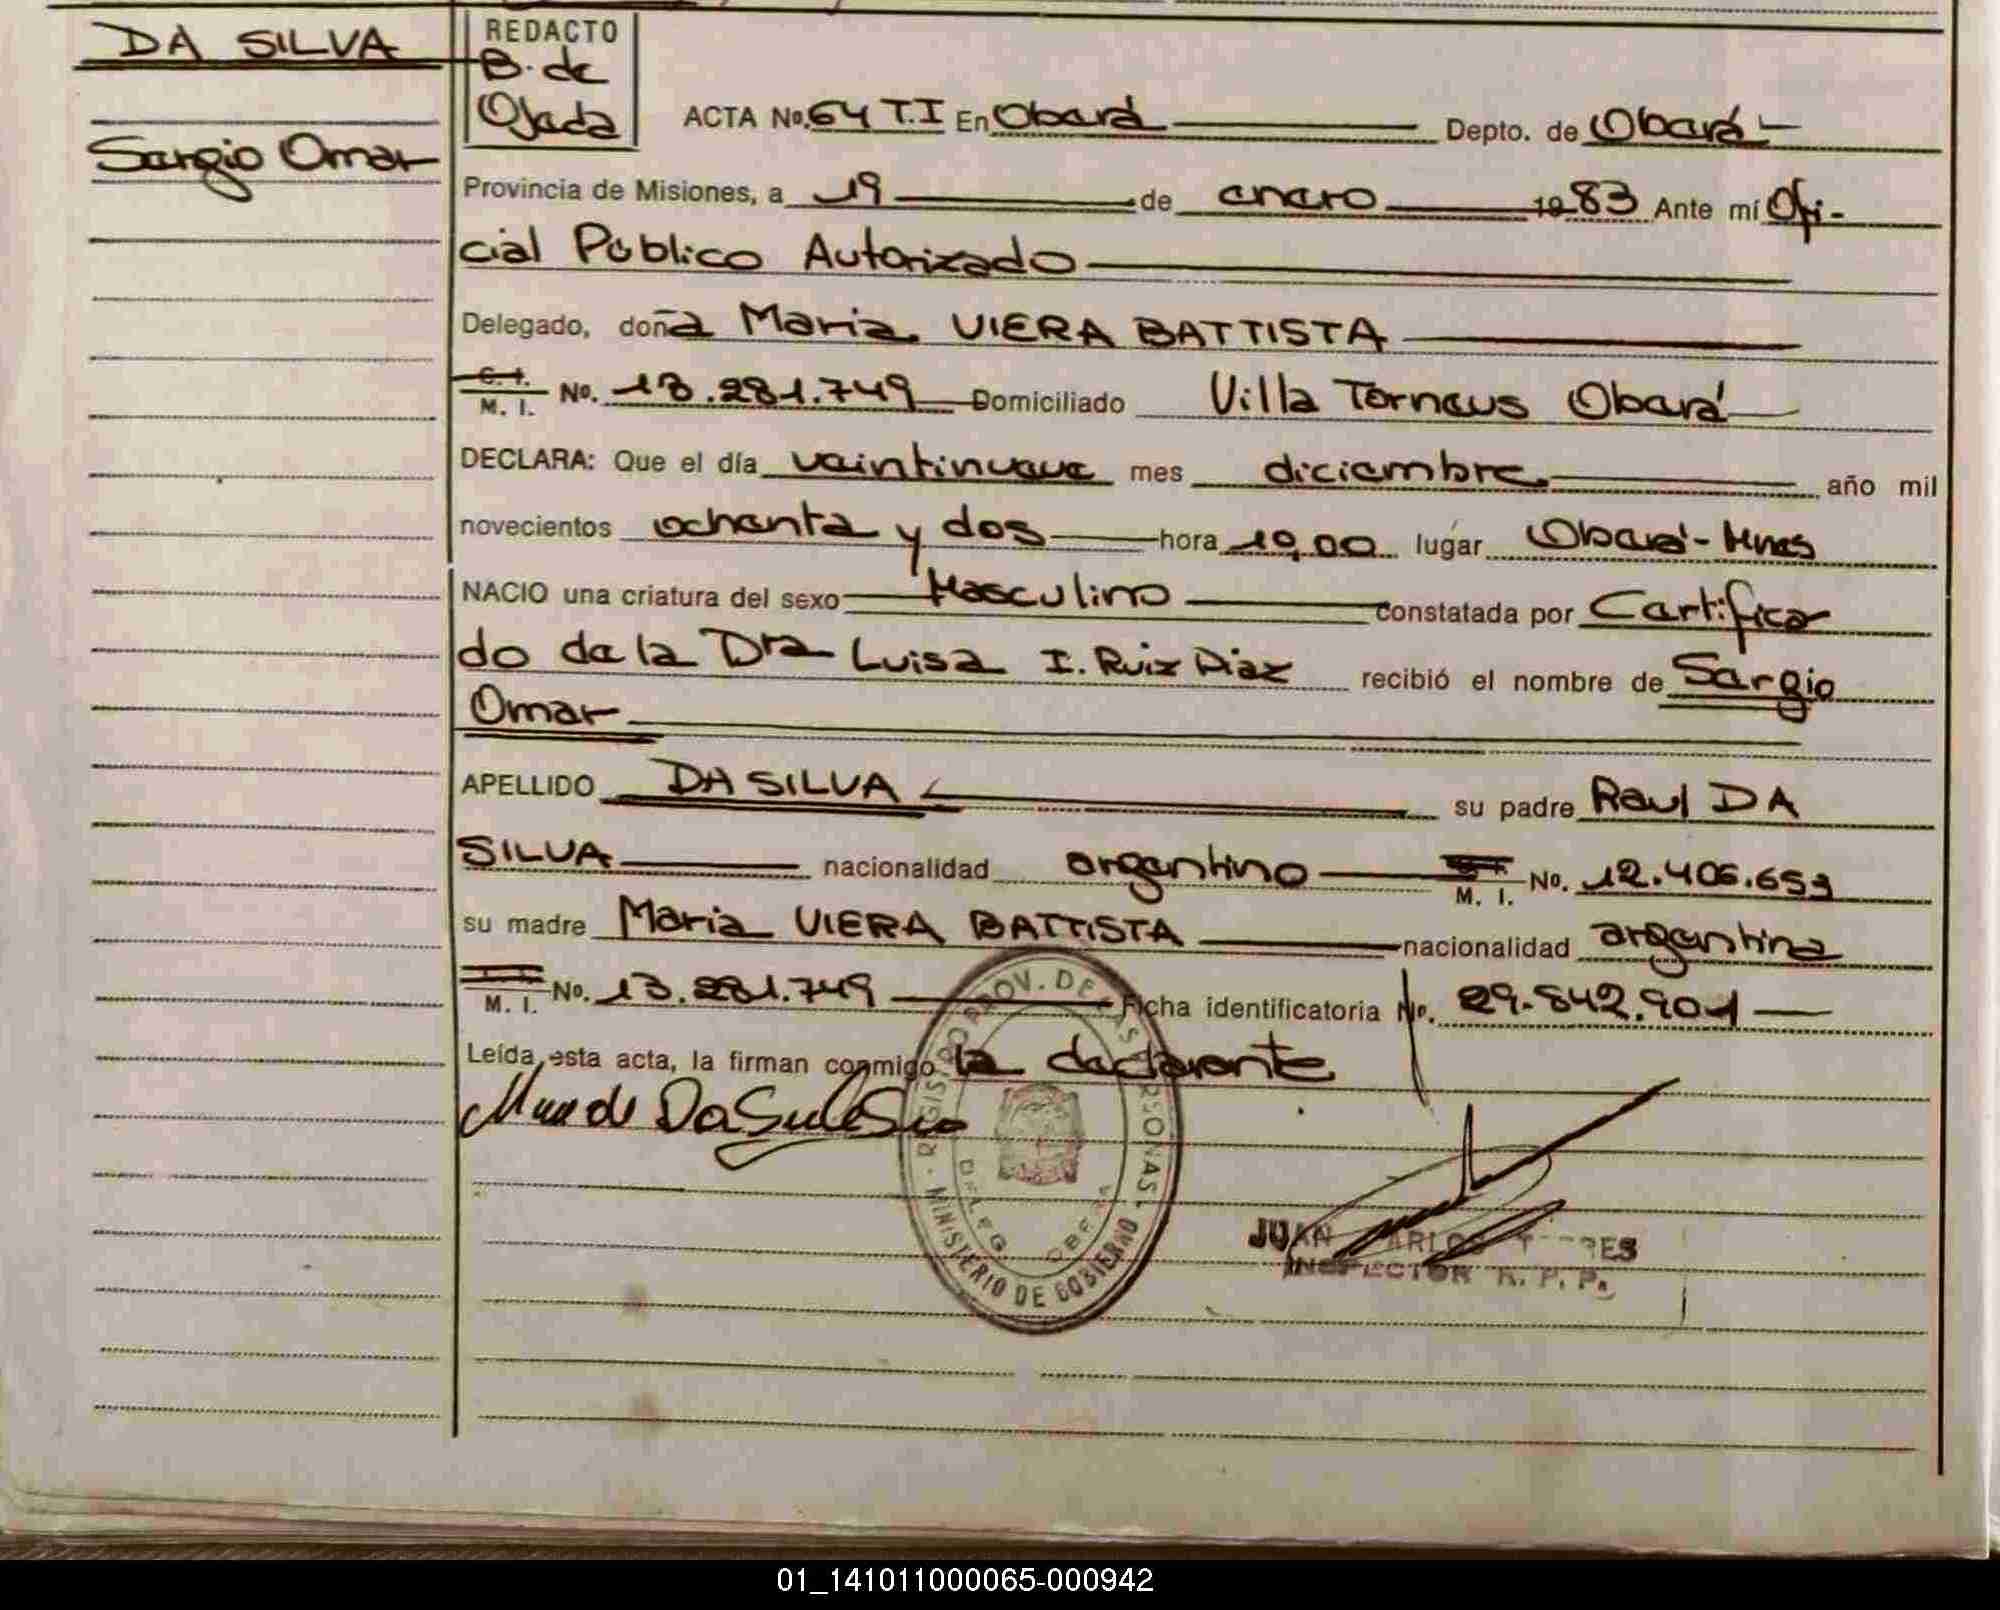 DA SILVA
Sergio Omar
REDACTO
B. de
Ojeda
ACTA No. 64 T.I En Oberá Depto. de Oberá
Provincia de Misiones, a 19 de enero 1983 Ante mí Ofi-
cial Público Autorizado
Delegado, doña Maria VIERA BATTISTA
C. I. M. I. No. 13.281.749 Domiciliado Villa Torneus Oberá
DECLARA: Que el día veintinueve mes diciembre año mil
novecientos ochenta y dos hora 10,00 lugar Oberá - Mnes
NACIO una criatura del sexo Masculino constatada por Certifica
do de la Dra Luisa I. Ruiz Diaz recibió el nombre de Sergio
Omar
APELLIDO DA SILVA su padre Raul DA
SILVA nacionalidad argentino M. I. No. 12.406.659
su madre Maria VIERA BATTISTA nacionalidad argentina
M. I. No. 13.281.749 Ficha identificatoria No. 29.842.901
Leída esta acta, la firman conmigo la declarante
REGISTRO PROV. DE LAS PERSONAS
DELEG. OBERA
MINISTERIO DE GOBIERNO
JUAN CARLOS
INSPECTOR R. P. P.
01_141011000065-000942